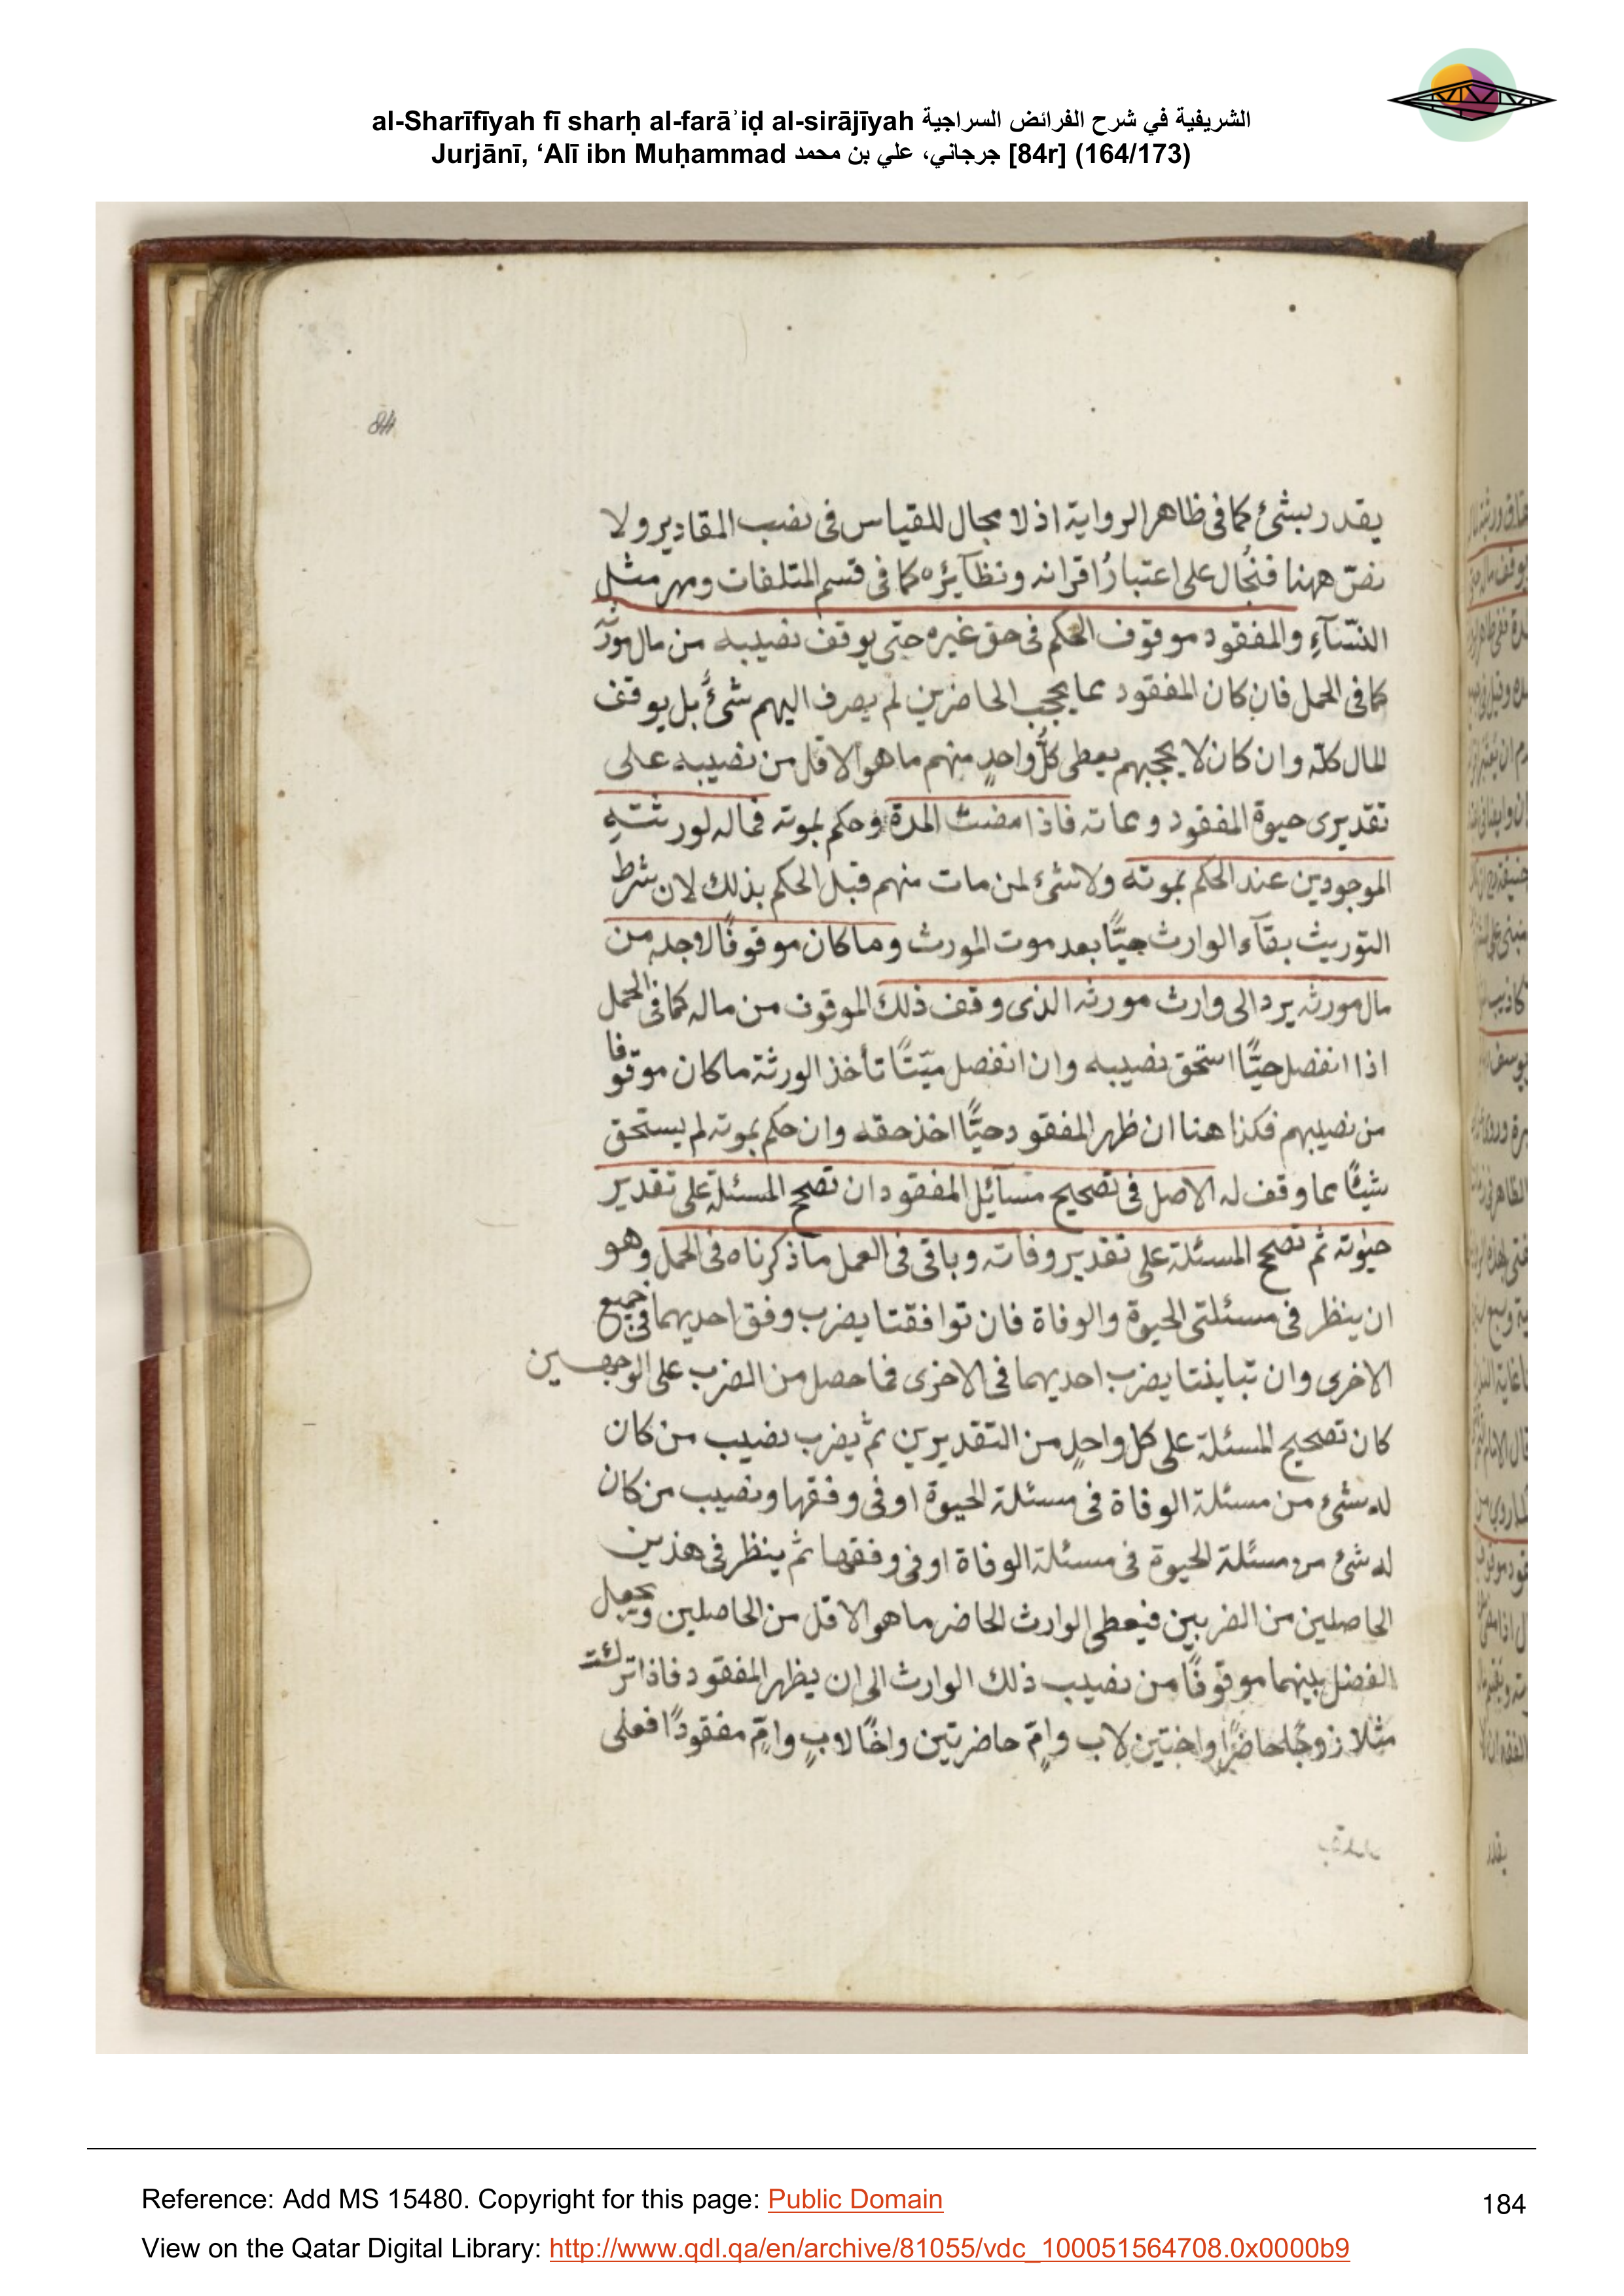 al-Sharīfīyah fī sharḥ al-farāʾiḍ al-sirājīyah الشريفية في شرح الفرائض السراجية
Jurjānī, ‘Alī ibn Muḥammad جرجاني، علي بن محمد [84r] (164/173)
84
يقدر بشئ كما فى ظاهر الرواية اذ لا مجال للقياس فى نصب المقادير ولا
نصّ ههنا فيحال على اعتبار اقرانه ونظآئره كما فى قسم المتلفات ومهر مثل
النسّآءِ والمفقود موقوف الحكم فى حق غيره حتى يوقف نصيبه من مال مورثه
كما فى الحمل فان كان المفقود مما يحجب الحاضرين لم يصرف اليهم شئٌ بل يوقف
المال كلّه وان كان لا يحجبهم يعطى كلُّ واحدٍ منهم ما هو الاقل من نصيبه على
تقديرى حيوة المفقود ومماته فاذا مضت المدة وحكم بموته فماله لورثتهِ
الموجودين عند الحكم بموته ولا شئ لمن مات منهم قبل الحكم بذلك لان شرط
التوريث بقآء الوارث حيًّا بعد موت المورث وما كان موقوفًا لاجله من
مال مورثه يرد الى وارث مورثه الذى وقف ذلك الموقوف من ماله كما فى الحمل
اذا انفصل حيًّا استحق نصيبه وان انفصل ميّتًا تأخذ الورثة ما كان موقوفا
من نصيبهم فكذا هنا ان ظهر المفقود حيًّا اخذ حقه وان حكم بموته لم يستحق
شيئًا مما وقف له الاصل فى تصحيح مسآئيل المفقود ان تصحح المسئلة على تقدير
حيوته ثم تصحح المسئلة على تقدير وفاته وباقى فى العمل ما ذكرناه فى الحمل وهو
ان ينظر فى مسئلتى الحيوة والوفاة فان توافقتا يضرب وفق احديهما فى جميع
الاخرى وان تباينتا يضرب احديهما فى الاخرى فما حصل من الضرب على الوجهين
كان تصحيح المسئلة على كل واحدٍ من التقديرين ثم يضرب نصيب من كان
له شئ من مسئلة الوفاة فى مسئلة الحيوة او فى وفقها ونصيب من كان
له شئ من مسئلة الحيوة فى مسئلة الوفاة او فى وفقها ثم ينظر فى هذين
الحاصلين من الضربين فيعطى الوارث الحاضر ما هو الاقل من الحاصلين ويجعل
الفضل بينهما موقوفًا من نصيب ذلك الوارث الى ان يظهر المفقود فاذا تركت
مثلا زوجًا حاضرًا واختين لاب وامّ حاضرتين واخًا لابٍ وامٍّ مفقودًا فعلى
Reference: Add MS 15480. Copyright for this page: Public Domain
184
View on the Qatar Digital Library: http://www.qdl.qa/en/archive/81055/vdc_100051564708.0x0000b9